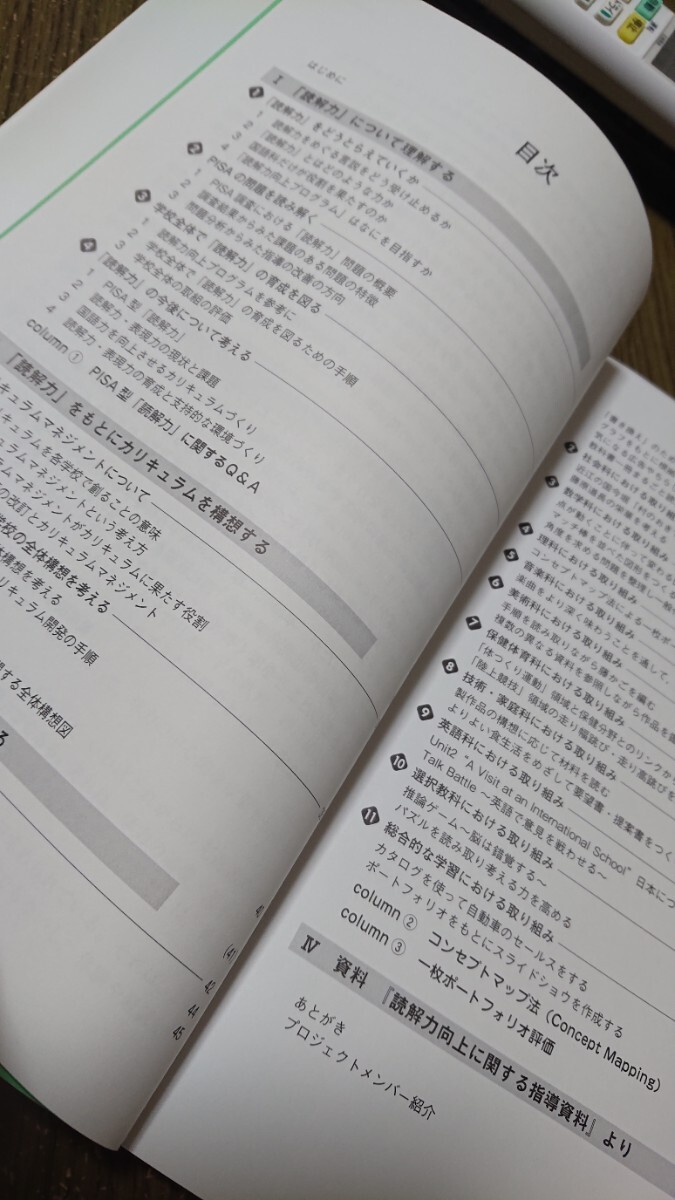 目次
はじめに
Ⅰ 「読解力」について理解する
1 「読解力」をどうとらえていくか
1 「読解力」をめぐる言説をどう受け止めるか
2 「読解力」とはどのような力か
3 国語科だけが役割を果たすのか
4 「読解力向上プログラム」はなにを目指すか
2 PISAの問題を読み解く
1 PISA調査における「読解力」問題の概要
2 調査結果からみた課題のある問題の特徴
3 問題分析からみた指導の改善の方向
3 学校全体で「読解力」の育成を図る
1 読解力向上プログラムを参考に
2 学校全体で「読解力」の育成を図るための手順
3 学校全体の取組の評価
4 「読解力」の今後について考える
1 PISA型「読解力」
2 読解力・表現力の現状と課題
3 国語力を向上させるカリキュラムづくり
4 読解力・表現力の育成と支持的な環境づくり
column ① PISA型「読解力」に関するQ&A
「読解力」をもとにカリキュラムを構想する
キュラムマネジメントについて
キュラムを各学校で創ることの意味
ュラムマネジメントという考え方
ムマネジメントがカリキュラムに果たす役割
の改訂とカリキュラムマネジメント
学校の全体構想を考える
体構想を考える
リキュラム開発の手順
する全体構想図
る
42
44
45
社会科における取り組み
3 数学科における取り組み
理科における取り組み
5 音楽科における取り組み
楽曲をより深く味わうことを通して、
6 美術科における取り組み
手順を読み取りながら籐かごを編む
複数の異なる資料を参照しながら作品を
7 保健体育科における取り組み
「体つくり運動」領域と保健分野とのリンクから
「陸上競技」領域の走り幅跳び・走り高跳びを
8 技術・家庭科における取り組み
製作品の構想に応じて材料を読む
よりよい食生活をめざして要望書・提案書をつく
9 英語科における取り組み
Unit2 "A Visit at an International School" 日本につ
Talk Battle ～英語で意見を戦わせる～
10 選択教科における取り組み
推論ゲーム～脳は錯覚する～
パズルを読み取り考える力を高める
11 総合的な学習における取り組み
カタログを使って自動車のセールスをする
ポートフォリオをもとにスライドショウを作成する
column ② コンセプトマップ法（Concept Mapping）
column ③ 一枚ポートフォリオ評価
Ⅳ 資料 『読解力向上に関する指導資料』より
あとがき
プロジェクトメンバー紹介